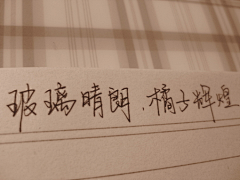 玻璃晴朗,橘子辉煌